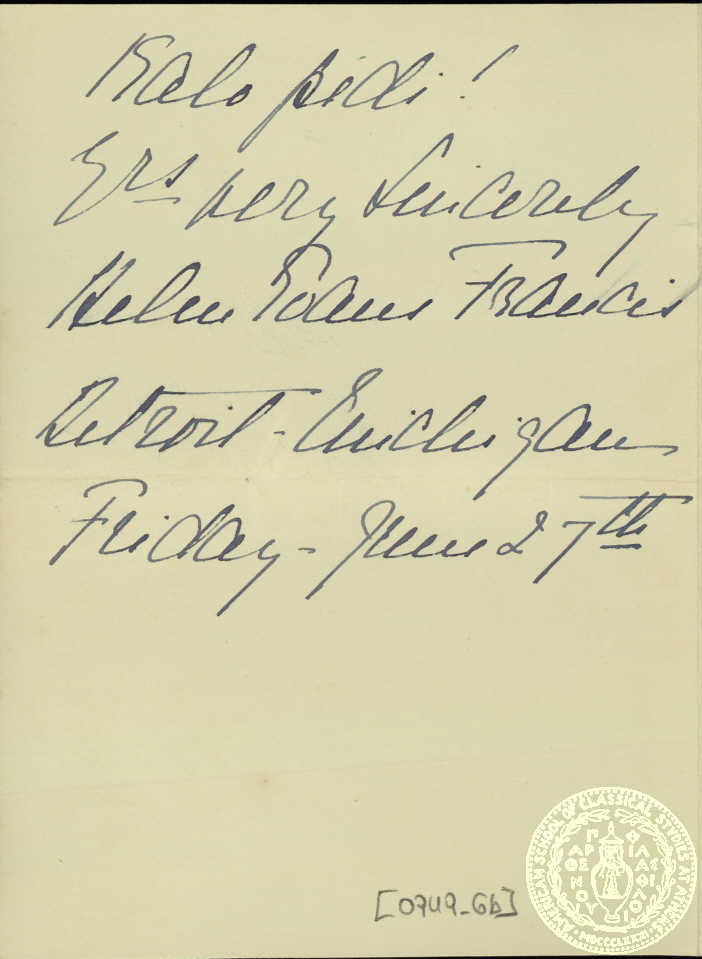 Kalo pedi!
Yrs very sincerely
Helen Evans Francis
Detroit - Michigan
Friday - June 27th
[0949_Gb]
AMERICAN SCHOOL OF CLASSICAL STUDIES AT ATHENS
ΠΑΡΘΕΝΟΥ ΦΙΛΑΣ ΦΙΛΟΙ
MDCCCLXXXI